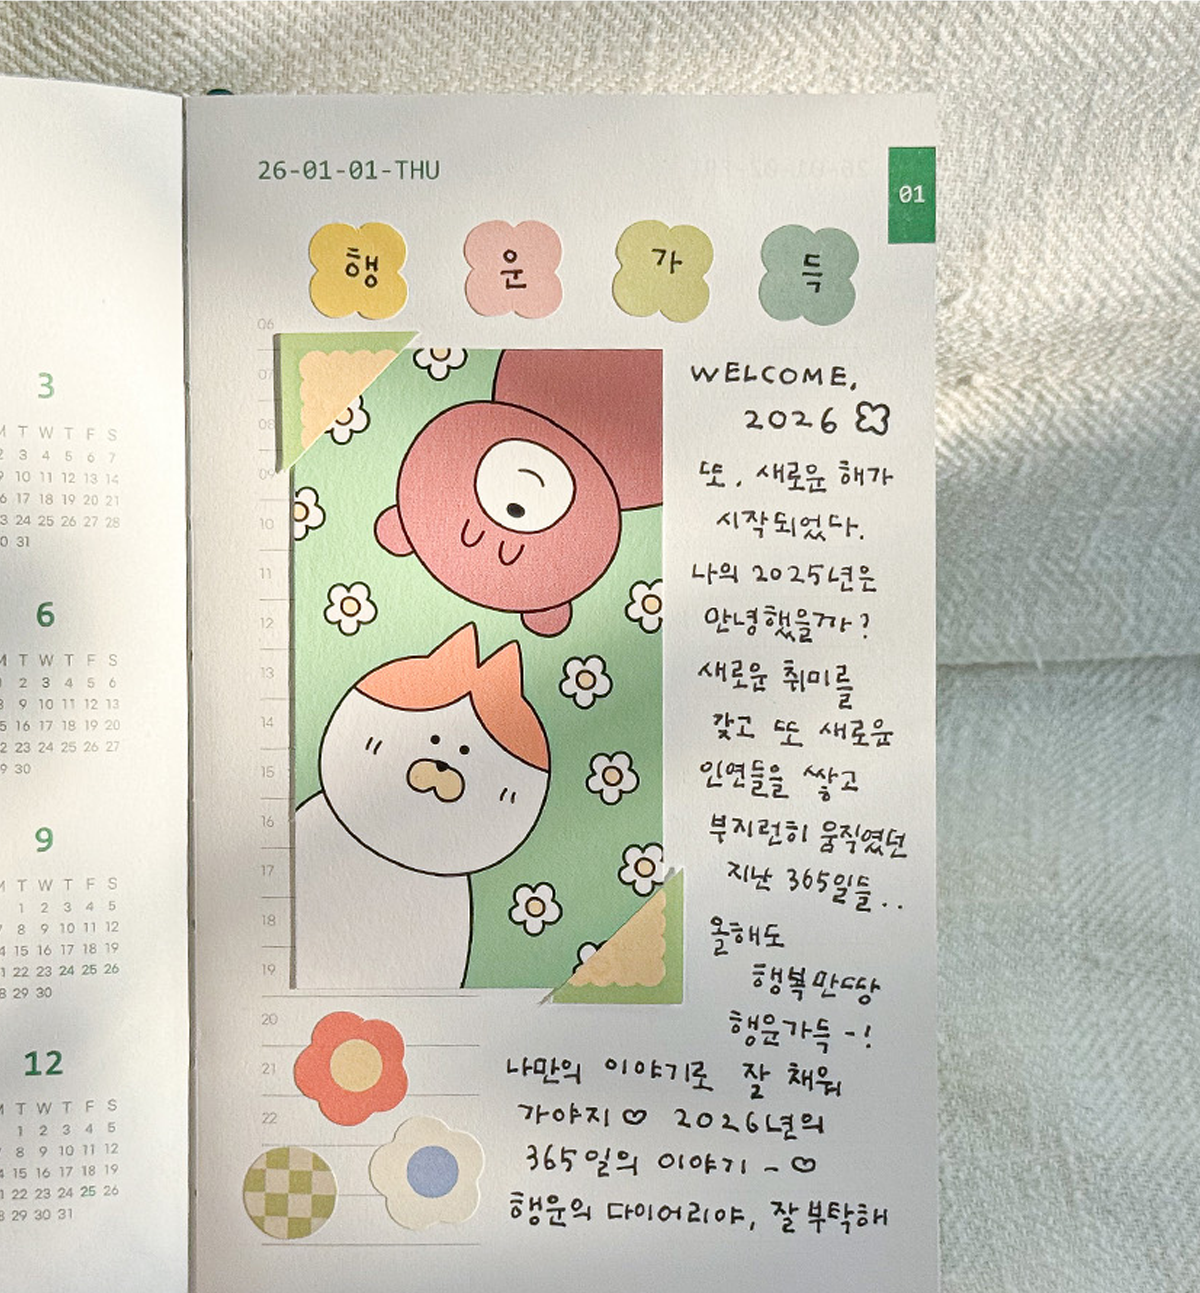 26-01-01-THU
01
행 운 가 득
WELCOME,
2026
또, 새로운 해가
시작되었다.
나의 2025년은
안녕했을까?
새로운 취미를
갖고 또 새로운
인연들을 쌓고
부지런히 움직였던
지난 365일들..
올해도
행복만땅
행운가득-!
나만의 이야기로 잘 채워
가야지♡ 2026년의
365일의 이야기-♡
행운의 다이어리야, 잘부탁해
06
07
08
09
10
11
12
13
14
15
16
17
18
19
20
21
22
3
T W T F S
3 4 5 6 7
10 11 12 13 14
17 18 19 20 21
24 25 26 27 28
31
6
T W T F S
2 3 4 5 6
9 10 11 12 13
16 17 18 19 20
23 24 25 26 27
30
9
T W T F S
1 2 3 4 5
8 9 10 11 12
15 16 17 18 19
22 23 24 25 26
29 30
12
T W T F S
1 2 3 4 5
8 9 10 11 12
15 16 17 18 19
22 23 24 25 26
29 30 31